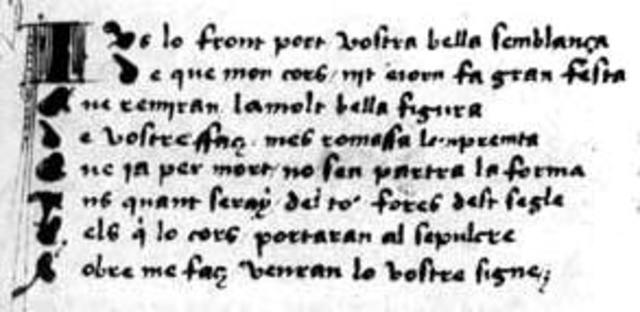 Ius lo front port vostra bella semblança
De que mon cors nit eiorn fa gran festa
Que remiran lamolt bella figura
De vostre ffaç mes romassa lenpremta
Que ia per mort no sen partra la forma
Ans quant seray del tot fores dest segle
Cels qi lo cors portaran al sepulcre
Sobre me faç veuran lo vostre signe;